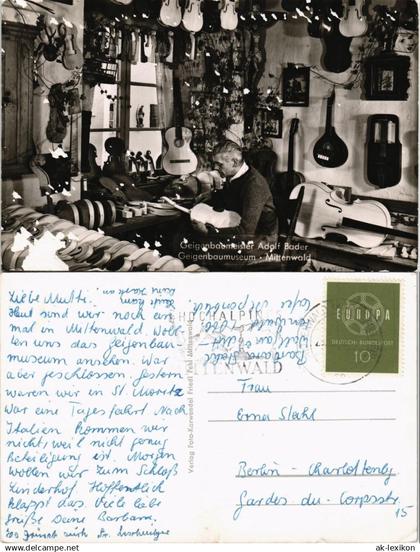 Geigenbaumeister Adolf Bader
Geigenbaumuseum · Mittenwald
Liebe Mutti!
Heut sind wir noch ein-
mal in Mittenwald. Woll-
ten uns das Geigenbau-
museum ansehen. War
aber geschlossen. Gestern
waren wir in St. Moritz
War eine Tagesfahrt Nach
Italien kommen wir
nicht, weil nicht genug
Beteiligung ist. Morgen
wollen wir zum Schloß
Linderhof. Hoffentlich
klappt das. Viele liebe
Grüße Deine Barbara.
Verlag Foto-Karwendel Friedl Fehl Mittenwald
HOCHALPIN
MITTENWALD
EUROPA
DEUTSCHE BUNDESPOST
10
Frau
Erna Stahl
Berlin-Charlottenbg
Gardes du-Corpsstr.
15
ak-lexikon
© ak-lexikon.de